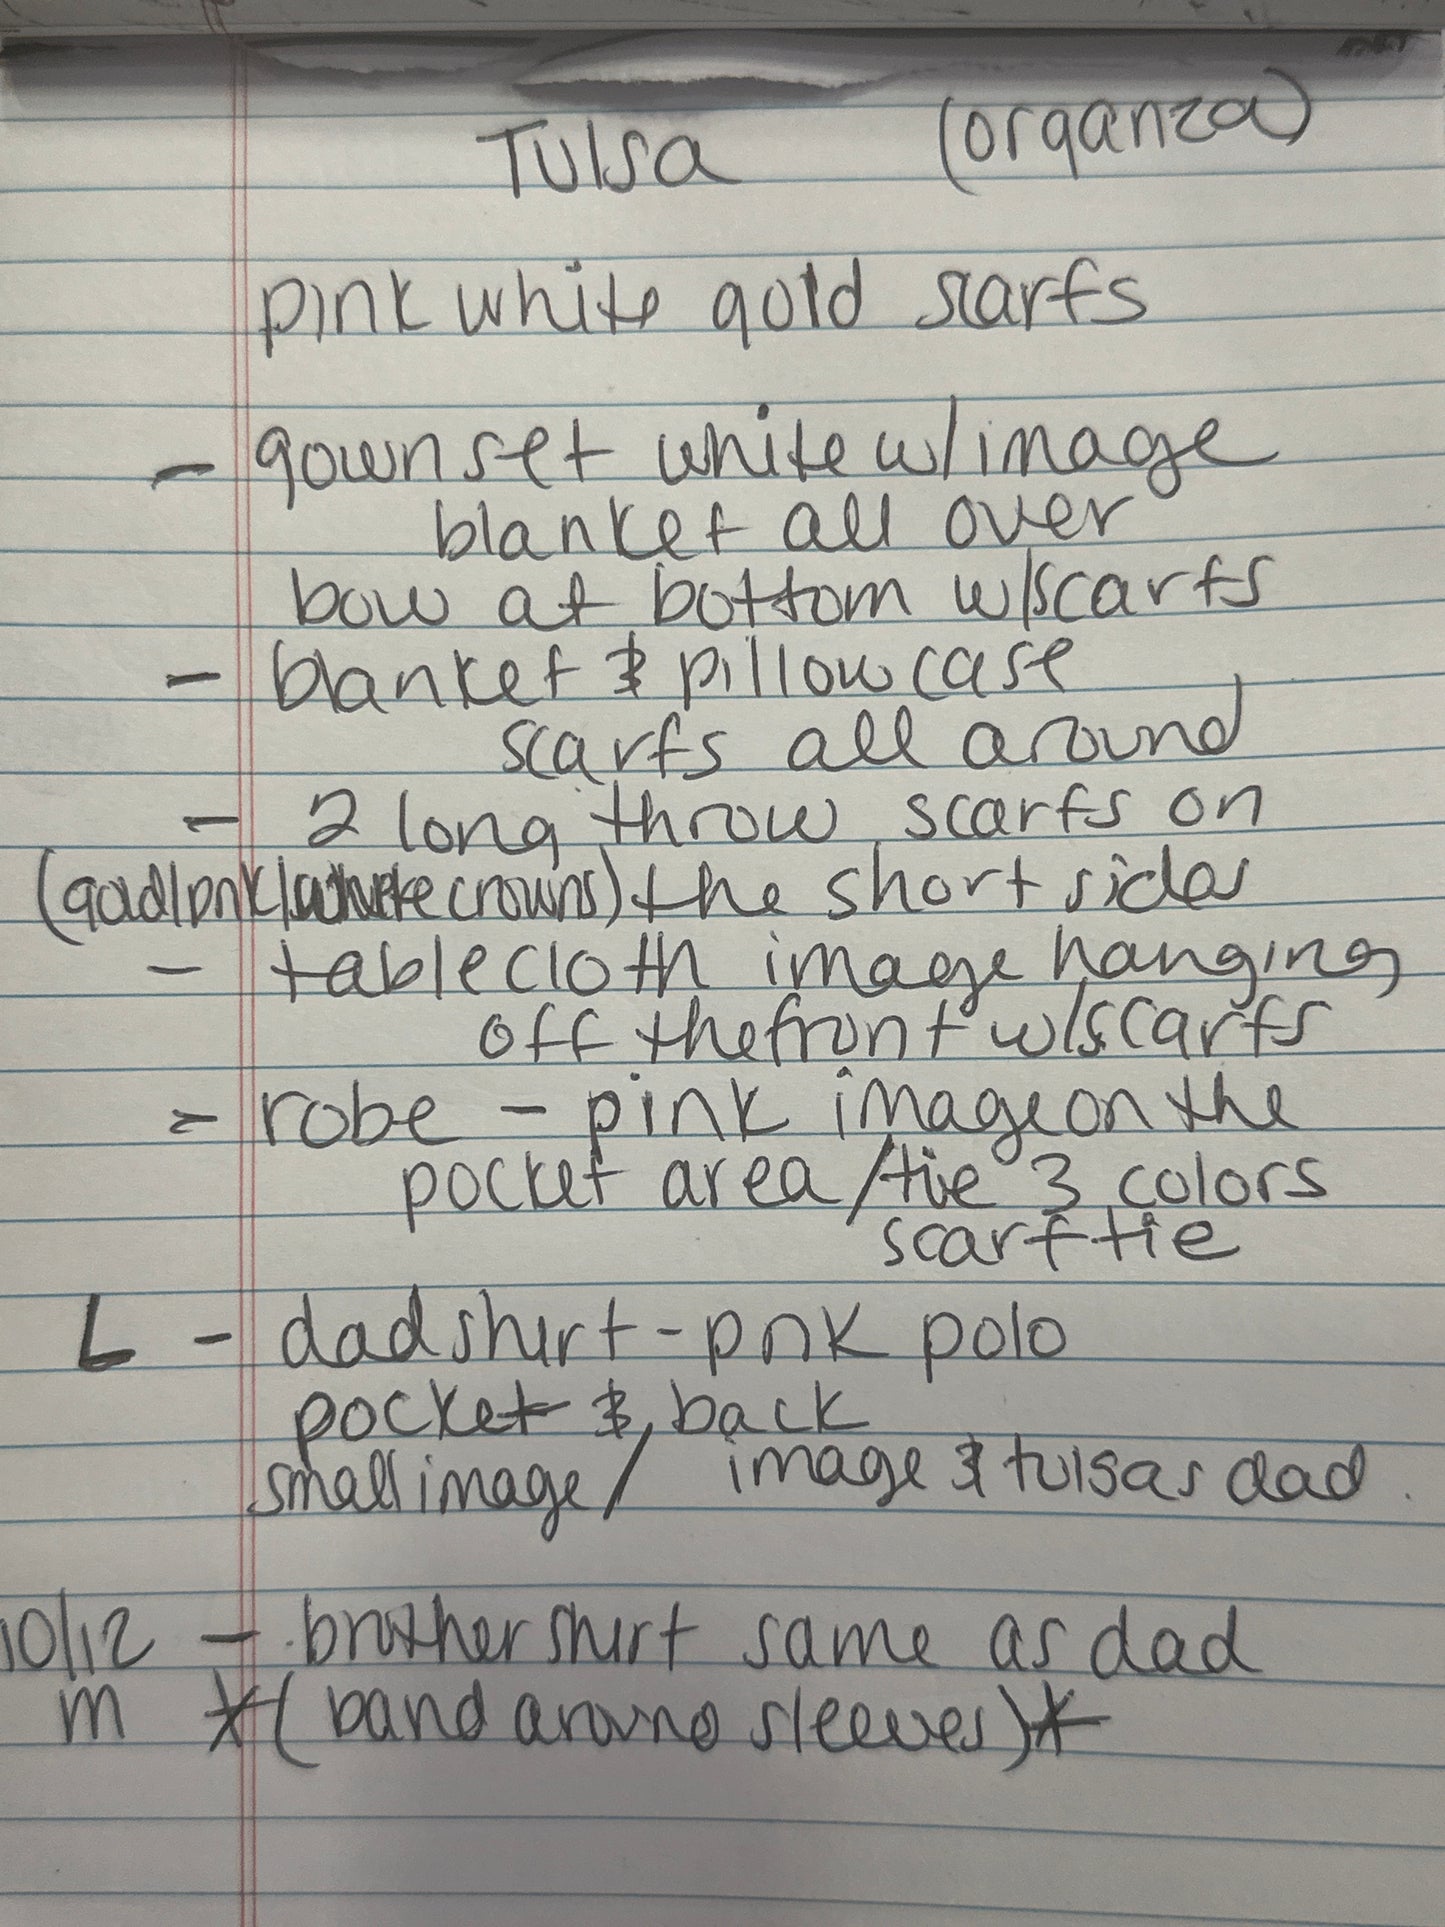 Tulsa (organza)
pink white gold scarfs
- gown set white w/image
blanket all over
bow at bottom w/scarfs
- blanket & pillow case
scarfs all around
- 2 long throw scarfs on
(gold/pnk/white crowns) the short sides
- table cloth image hanging
off the front w/scarfs
- robe - pink image on the
pocket area/tie 3 colors
scarf tie
L - dad shirt - pnk polo
pocket & back
small image / image & tulsas dad
10/12 - brother shirt same as dad
m *(band around sleeves)*